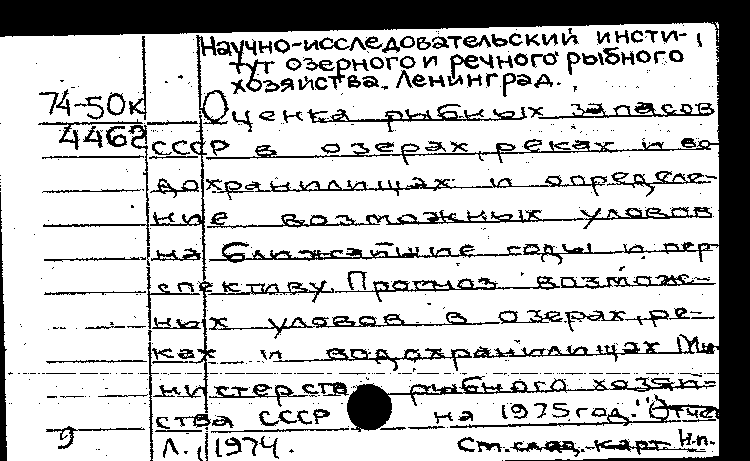 Научно-исследовательский инсти-
тут озерного и речного рыбного
хозяйства. Ленинград.
74-50к Оценка рыбных запасов
4462 СССР в озерах, реках и во-
дохранилищах и определе-
ние возможных уловов
на ближайшие годы и пер
спективу. Прогноз возмож-
ных уловов в озерах, ре-
ках и водохранилищах Ми-
нистерства рыбного хозяй-
ства СССР на 1975 год." (Отчет
9 Л., 1974. См. след. карт. Н.п.